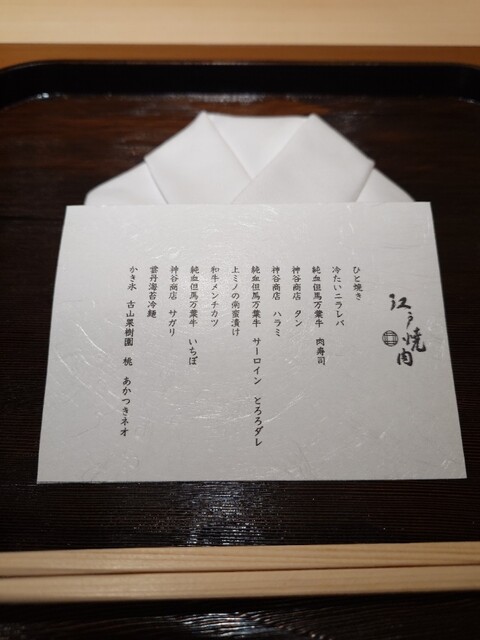 江戸焼肉
ひと焼き
冷たいニラレバ
純血但馬万葉牛 肉寿司
神谷商店 タン
神谷商店 ハラミ
純血但馬万葉牛 サーロイン とろろダレ
上ミノの南蛮漬け
和牛メンチカツ
純血但馬万葉牛 いちぼ
神谷商店 サガリ
雲丹海苔冷麺
かき氷 古山果樹園 桃 あかつきネオ